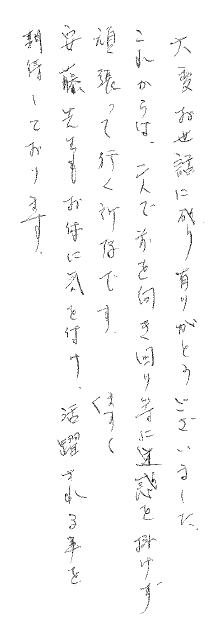 大変お世話に成り有りがとうございました。
これからは、二人で前を向き回り等に迷惑を掛けず
頑張って行く所存です。
安藤先生もお体に気を付け、ますます活躍される事を
期待しております。